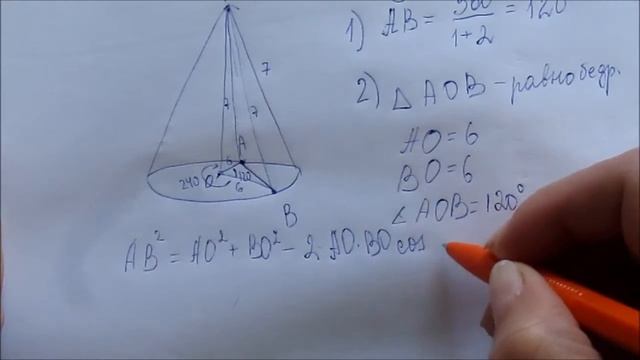 1) AB = 360/1+2 = 120
2) △ AOB – равнобедр.
AO = 6
BO = 6
∠ AOB = 120°
AB² = AO² + BO² – 2·AO·BO cos
7
7
7
A
6
240
O
120
6
B